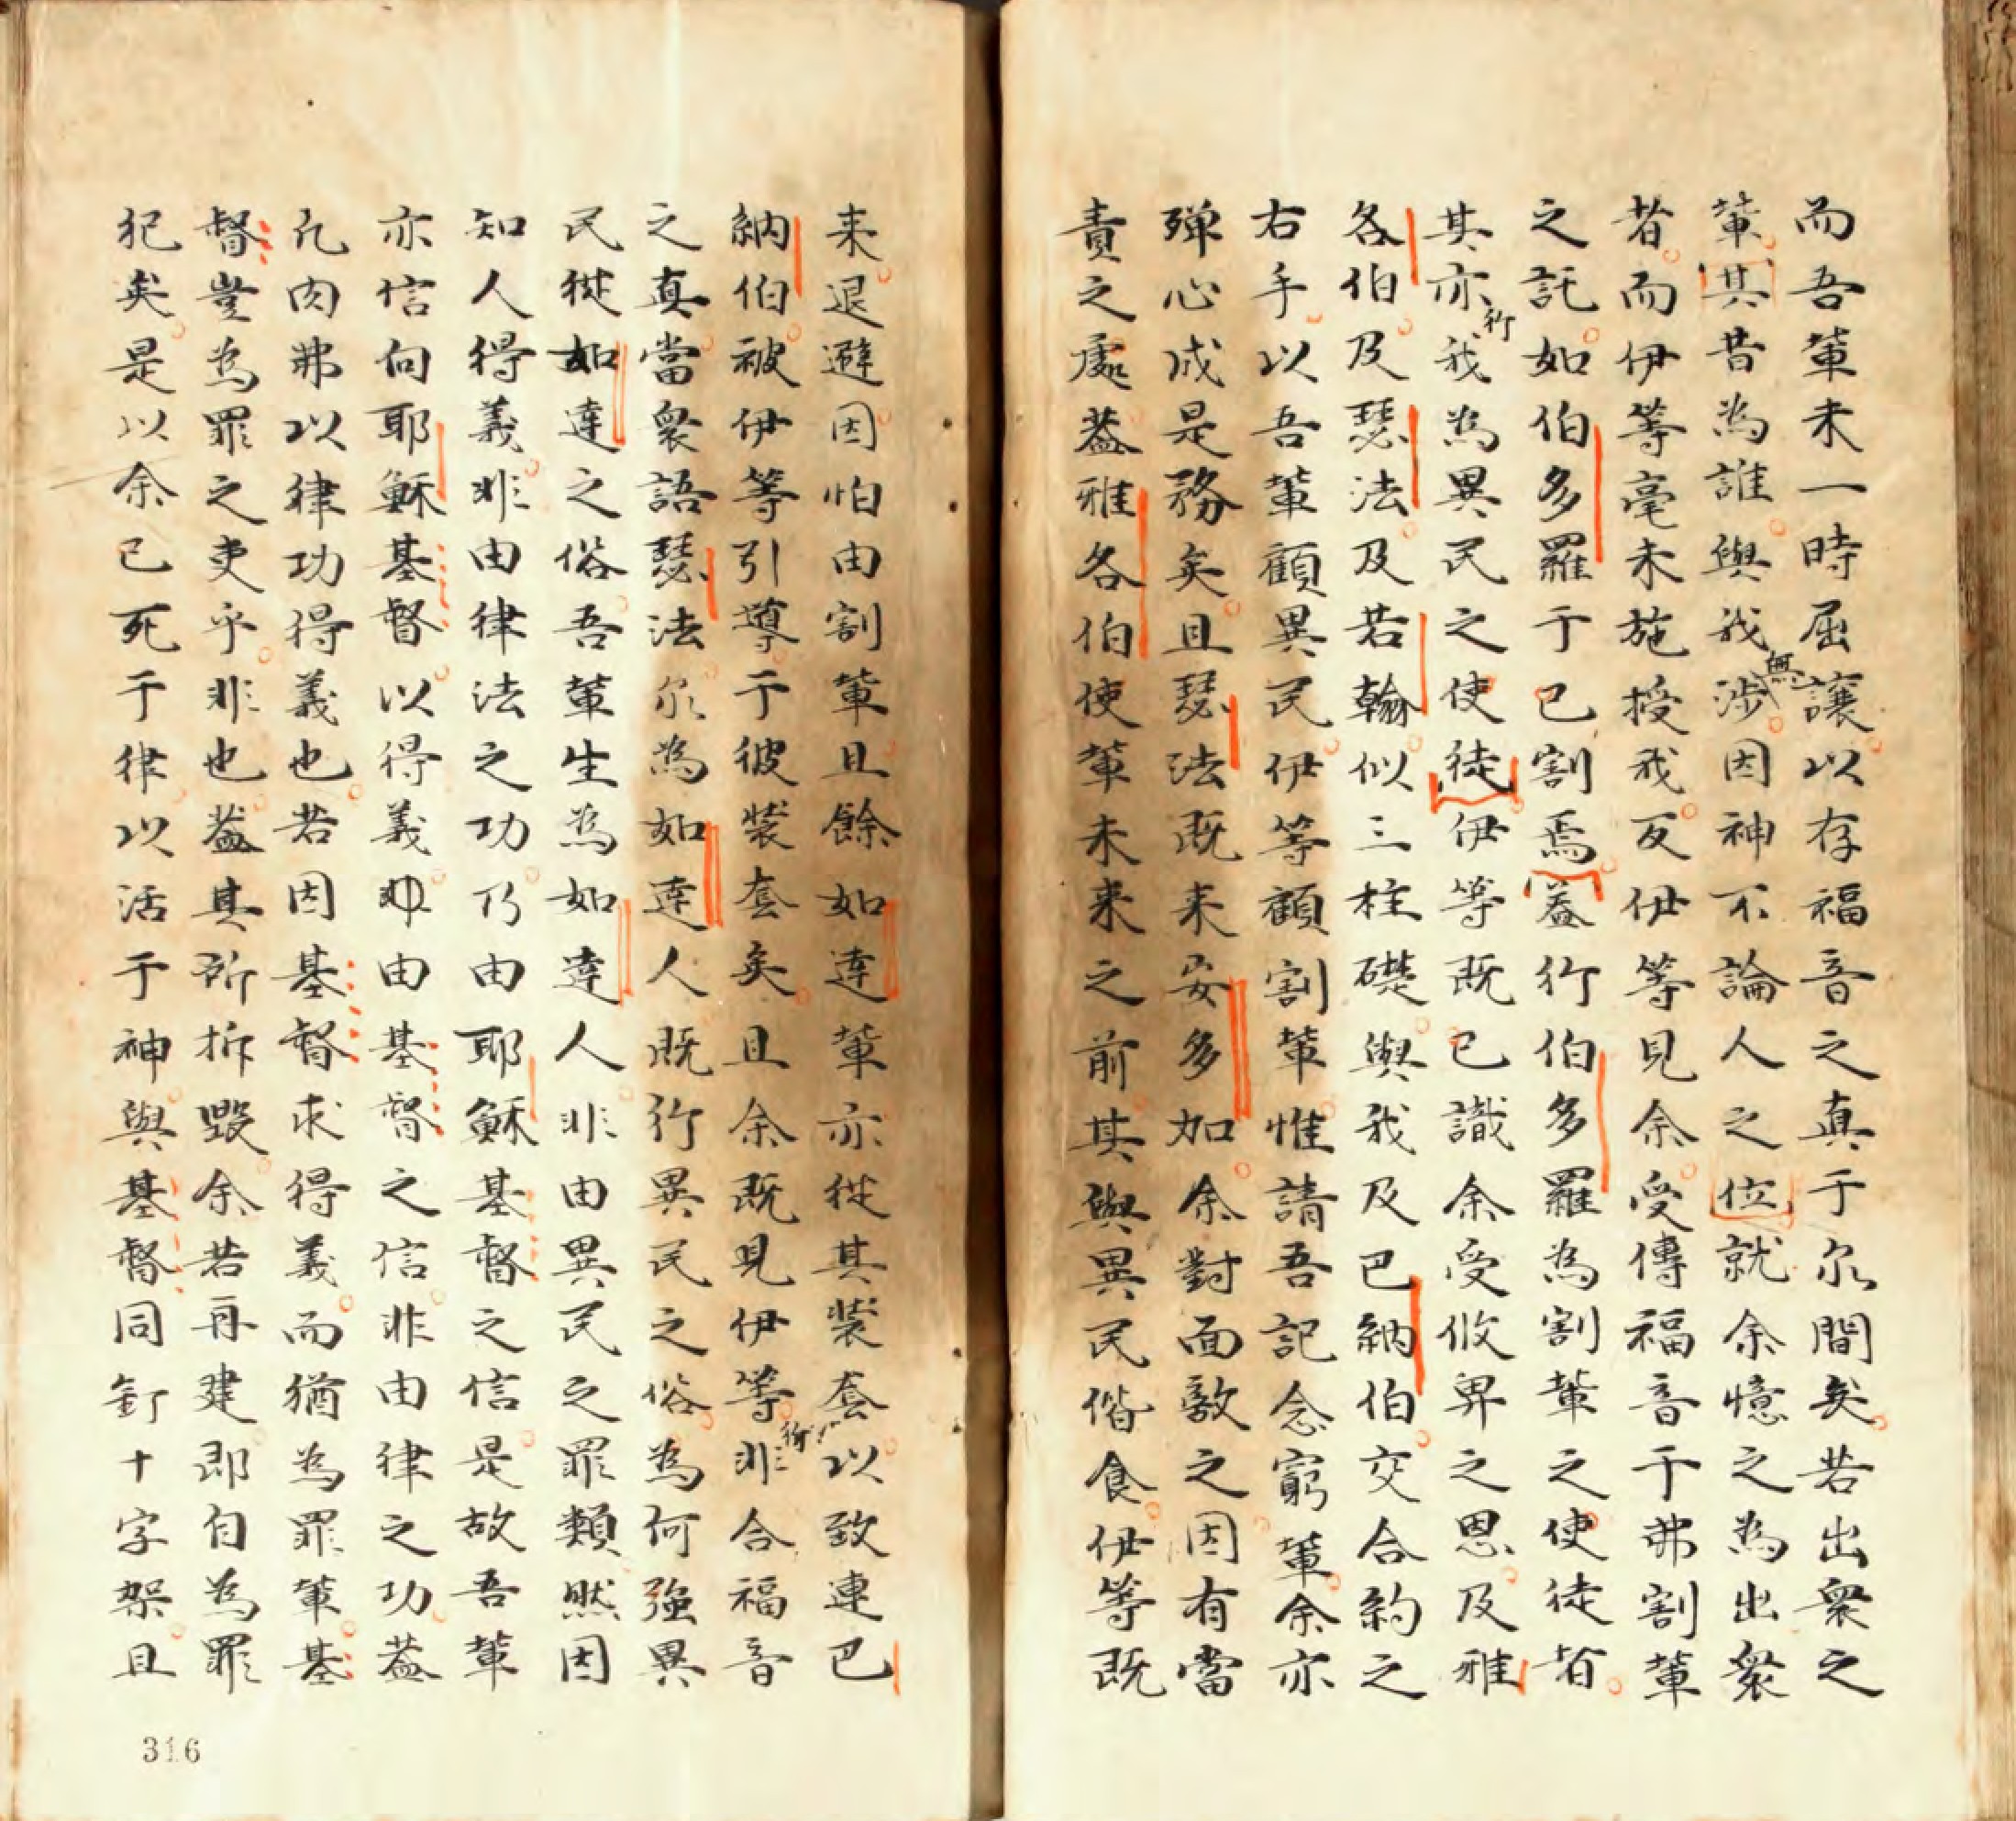 而吾輩未一時屈讓以存福音之真于尔間矣若出衆之
輩其昔為誰與我無涉因神不論人之位就余憶之為出衆
者而伊等毫未施授我反伊等見余受傳福音于弗割輩
之託如伯多羅于已割焉蓋行伯多羅為割輩之使徒者
其亦行我為異民之使徒伊等既已識余受攸畀之恩及雅
各伯及瑟法及若翰似三柱礎與我及巴納伯交合約之
右手以吾輩顧異民伊等顧割輩惟請吾記念窮輩余亦
殫心成是務矣且瑟法既来安多加余對面敵之因有當
責之處蓋雅各伯使輩未来之前其與異民偕食伊等既
来退避因怕由割輩且餘如達輩亦從其裝套以致連巴
納伯被伊等引導于彼裝套矣且余既見伊等行非合福音
之真當衆語瑟法尔為如達人既行異民之俗為何強異
民從如達之俗吾輩生為如達人非由異民之罪類然因
知人得義非由律法之功乃由耶穌基督之信是故吾輩
亦信向耶穌基督以得義由基督之信非由律之功蓋
凡肉弗以律功得義也若因基督求得義而猶為罪輩基
督豈為罪之吏乎非也蓋其所拆毀余若再建即自為罪
犯矣是以余已死于律以活于神與基督同釘十字架且
316